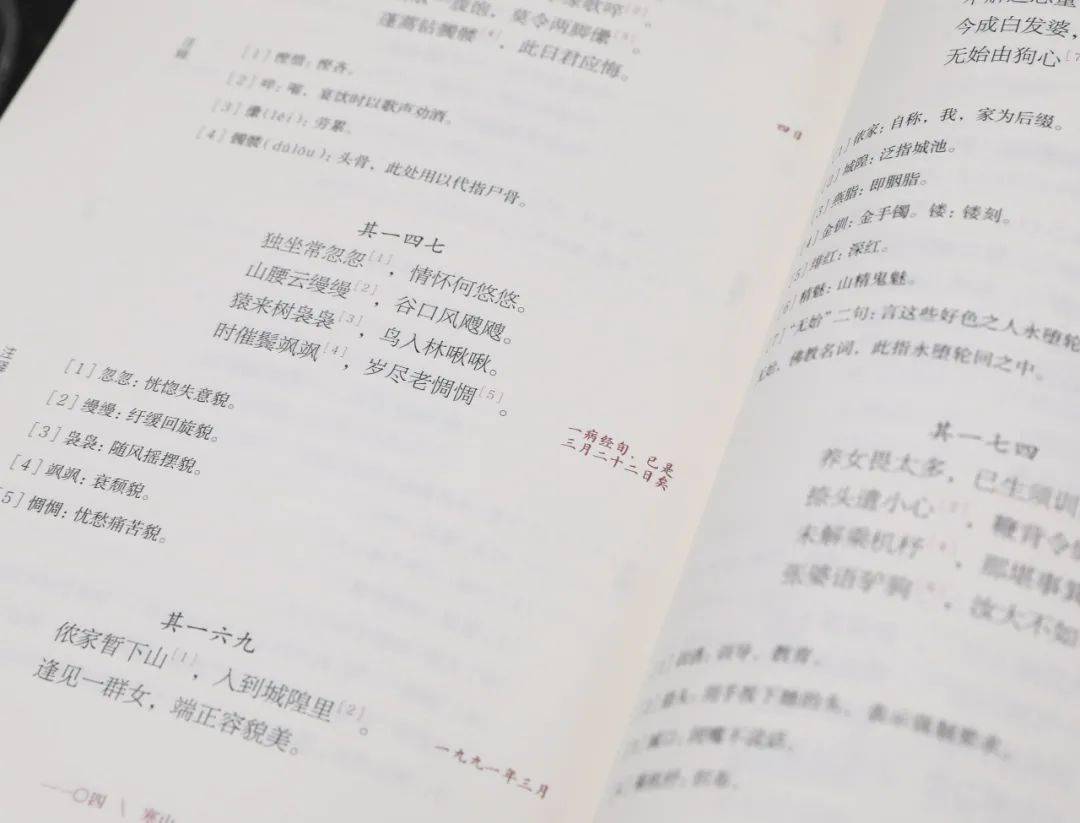 莫令两脚儽[3]。
蓬蒿钻髑髅[4],此日君应悔。
[1] 悭惜:悭吝。
[3] 儽(lěi):劳累。
[4] 髑髅(dúlóu):头骨,此处用以代指尸骨。
四日
其一四七
独坐常忽忽[1],情怀何悠悠。
山腰云缦缦[2],谷口风飕飕。
猿来树袅袅[3],鸟入林啾啾。
时催鬓飒飒[4],岁尽老惆惆[5]。
一病经旬,已是
三月二十二日矣
[1] 忽忽:恍惚失意貌。
[2] 缦缦:纡缓回旋貌。
[3] 袅袅:随风摇摆貌。
[4] 飒飒:衰颓貌。
[5] 惆惆:忧愁痛苦貌。
其一六九
侬家暂下山[1],人到城隍里[2]。
逢见一群女,端正容貌美。
一九九一年三月
一〇四 \ 寒山
今成白发婆,
无始由狗心[7
[1] 侬家:自称,我,家为后缀。
[2] 城隍:泛指城池。
[3] 燕脂:即胭脂。
[4] 金钏:金手镯。镂:镂刻。
[5] 绯红:深红。
[6] 精魅:山精鬼魅。
[7] “无始”二句:言这些好色之人永堕轮
佛教名词,此指永堕轮回之中。
其一七四
养女畏太多,已生须训
捺头遣小心[2],鞭背令
未解乘机杼[4],那堪事箕
张婆语驴驹[5],汝大不如